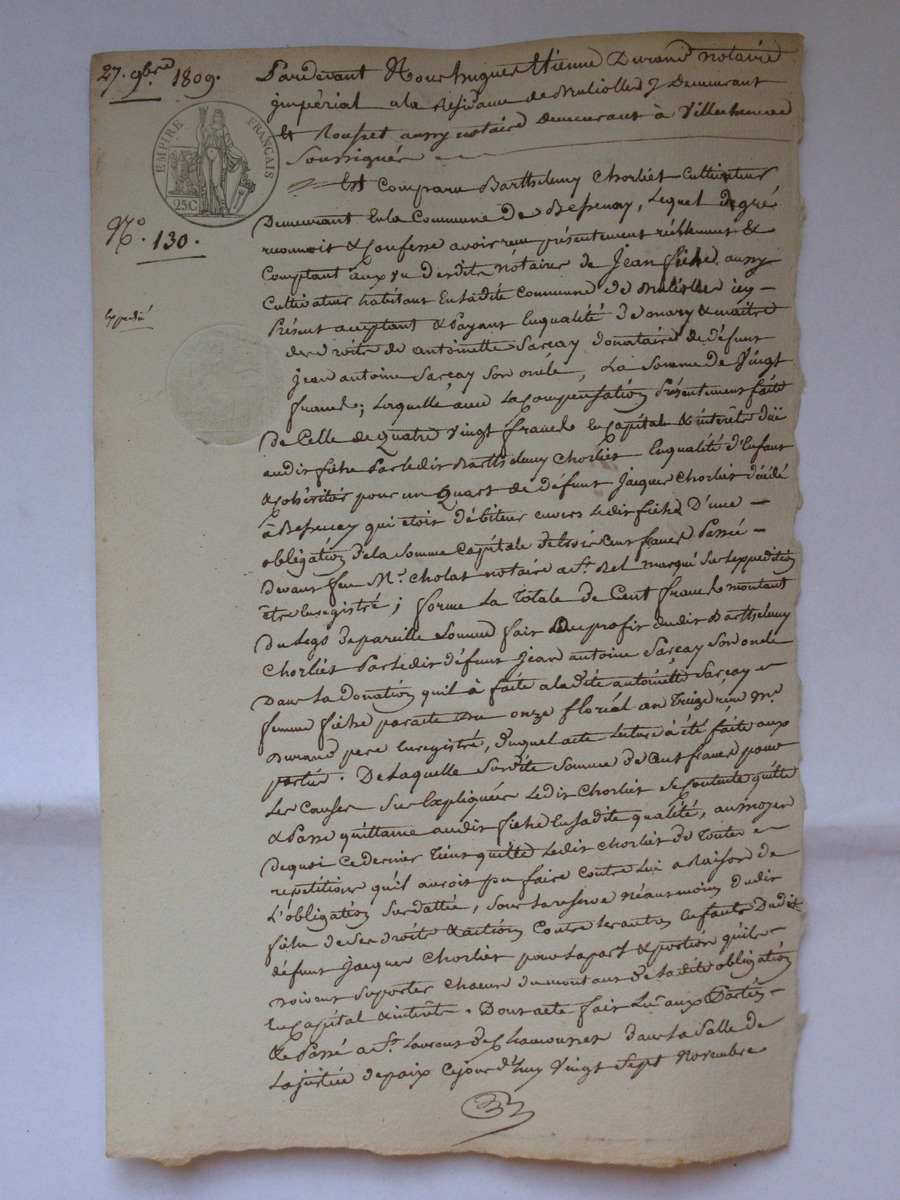 27. 9bre 1809.
EMPIRE FRANÇAIS
25C
N.o 130.
Expedié
Pardevant Nous hugues Etienne Durand notaire
jmpérial ala Résidance de Demeurant
& Rouset aussy notaire demeurant à Villechenève
Soussignés
Est Comparu Barthelemy Chorliet Cultivateur
Demeurant En la Commune de Bessenay, Lequel de gré
reconnoit & Confesse avoir reçu présentement réellement &
Comptant aux vu desdits nótaires de Jean fiéhé aussy
Cultivateur habitant En ladite Commune de icy
Présent aceptant & Payant Enqualité de mary & maitre
des droits de antoinette Sarcay donataire de défunt
jean antoine Sarçay Son oncle, La Somme de Vingt
francs; Laquelle avec La Compensation Présentement faite
De Celle de Quatre Vingt francs En Capital & interêts dûë
audit fiéhé Par ledit Barthelemy Chorliet Enqualité d'Enfant
& Cohéritier pour un Quart de défunt Jacques Chorliet décédé
à Bessenay qui étoit débiteur envers ledit fiéhé D'une
obligation de la Somme Capitale de trois Cent francs Passé
Devant feu Me. Cholat notaire a St. Bel marqué Sur Lexpedition
être Enregistré; forme La Totale de Cent francs montant
Du Legs de pareille Somme fait au profit dudit Barthelemy
Chorliet Par Ledit défunt Jean antoine Sarçay Son oncle
Dans La Donation quil à faite a ladite antoinette Sarçay
femme fiéhé par acte du onze floréal an Treize reçu Me.
Durand pere Enregistré, duquel acte Lecture à été faite aux
parties. De Laquelle Susdite Somme de Cent francs pour
Les Causes Sus Expliquées Ledit Chorliet Se Contente quitte
& Passe quittance audit fiéhé En sadite qualité, au moyen
dequoi Ce dernier Tient quitte Ledit Chorliet de Toutes
repétitions qu'il auroit pu faire Contre Lui a Raison de
L'obligation Susdattée, Sous La réserve Néanmoins dudit
fiéhé de Ses droits & actions Contre les autres Enfants Dudit
défunt Jacques Chorliet pour La part & portion qu'ils
doivent Suporter Chacun du montant de Ladite obligation
En Capital & interêts. Dont acte fait Lu aux Parties
& Passé a St. Laurent de Chamousset dans La Salle de
La justice de paix Cejourd'huy Vingt Sept Novembre